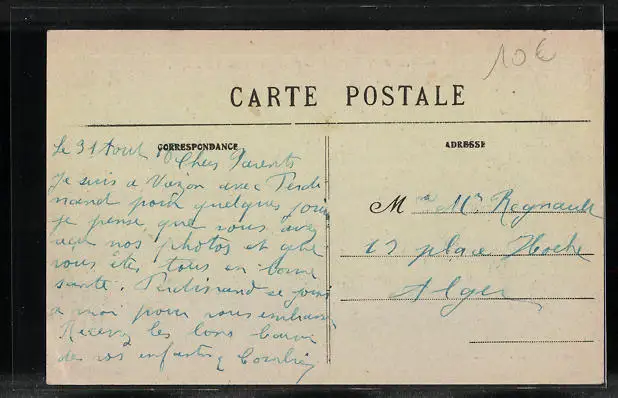 10€
CARTE POSTALE
CORRESPONDANCE
ADRESSE
Le 31 Aout
Chers Parents
Je suis a Vazon avec Ferdi
nand pour quelques jours
je pense que vous avez
reçu nos photos et que
vous êtes tous en bonne
santé. Ferdinand se joins
a moi pour vous embrasser
Recevez les bons baisers
de vos enfants
M Mr Regnault
13 place Hoche
Alger